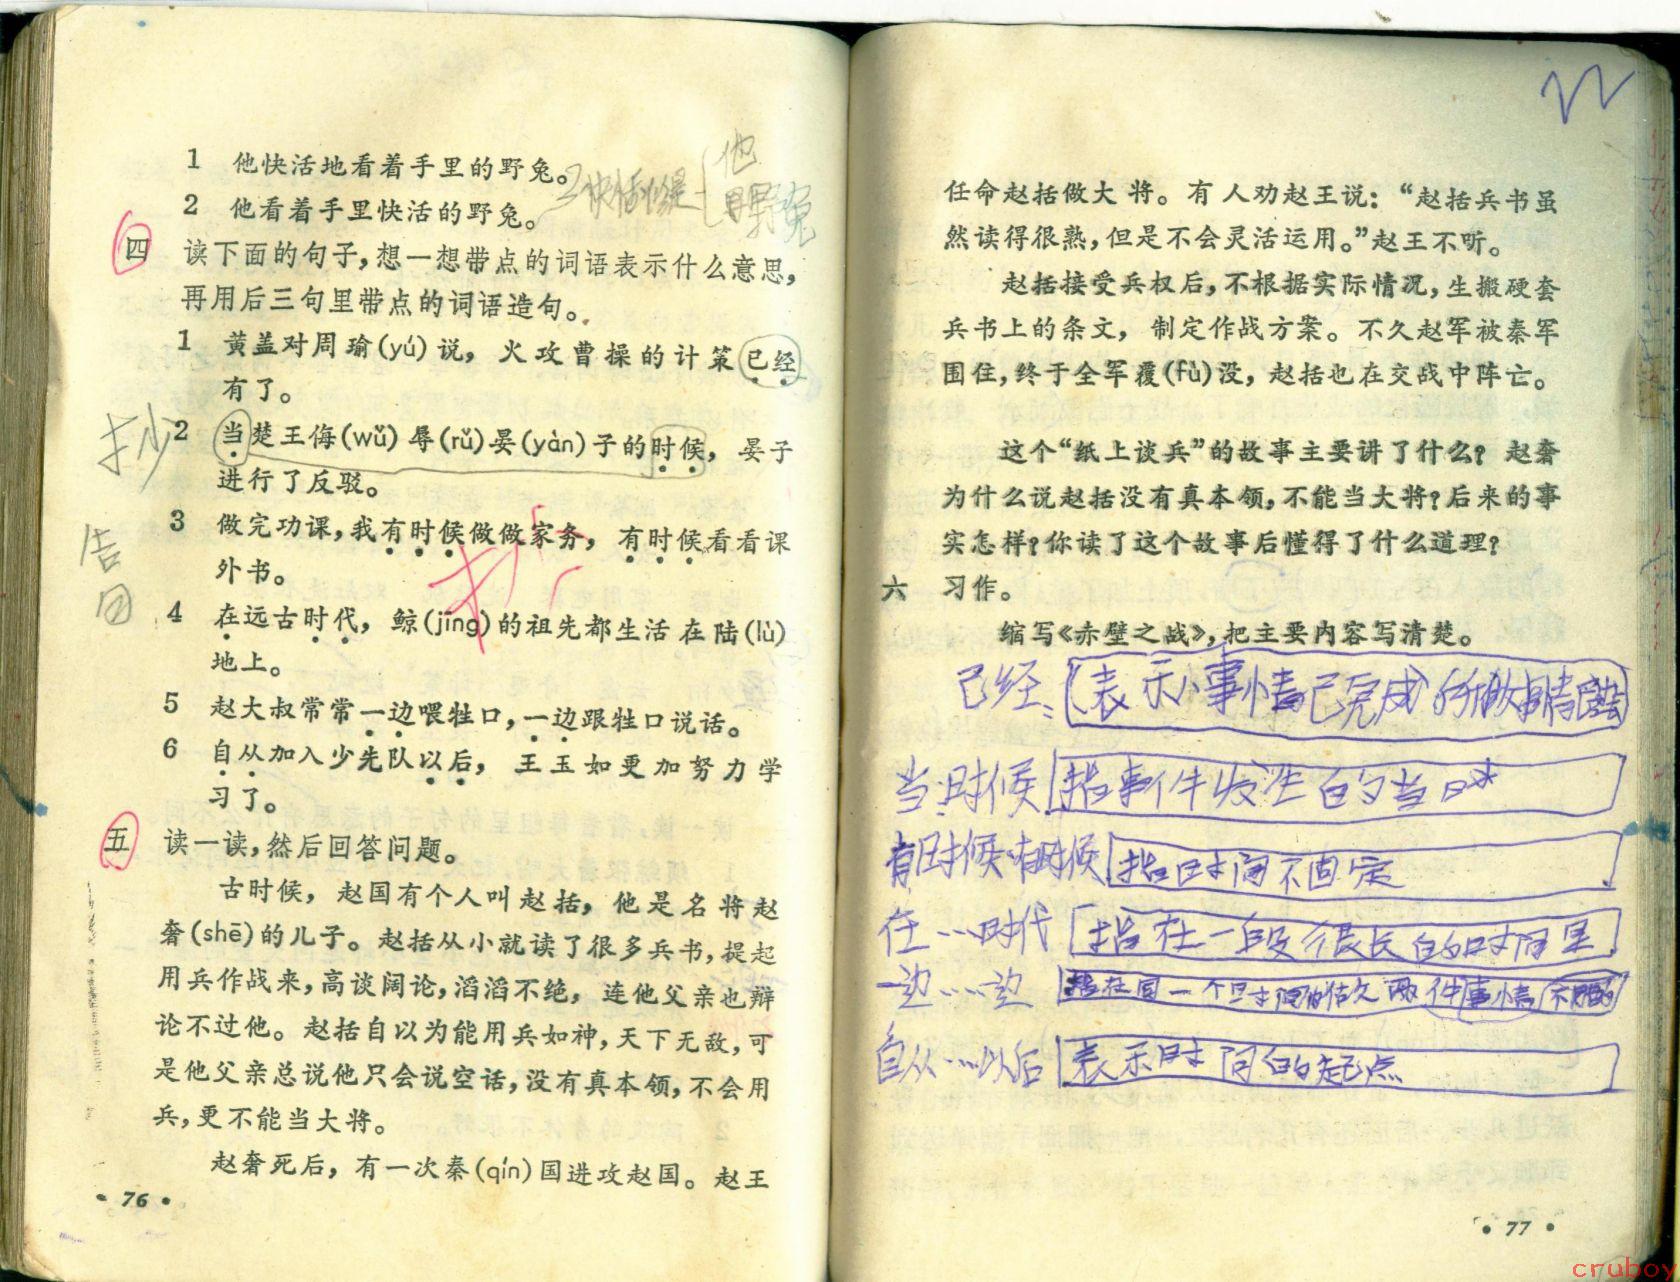 1 他快活地看着手里的野兔。
2 他看着手里快活的野兔。
他
四 读下面的句子，想一想带点的词语表示什么意思，
再用后三句里带点的词语造句。
1 黄盖对周瑜(yú)说，火攻曹操的计策已经
有了。
抄
2 当楚王侮(wǔ)辱(rǔ)晏(yàn)子的时候，晏子
进行了反驳。
3 做完功课，我有时候做做家务，有时候看看课
外书。
抄
4 在远古时代，鲸(jīng)的祖先都生活在陆(lù)
地上。
5 赵大叔常常一边喂牲口，一边跟牲口说话。
6 自从加入少先队以后，王玉如更加努力学
习了。
五 读一读，然后回答问题。
古时候，赵国有个人叫赵括，他是名将赵
奢(shē)的儿子。赵括从小就读了很多兵书，提起
用兵作战来，高谈阔论，滔滔不绝，连他父亲也辩
论不过他。赵括自以为能用兵如神，天下无敌，可
是他父亲总说他只会说空话，没有真本领，不会用
兵，更不能当大将。
赵奢死后，有一次秦(qín)国进攻赵国。赵王
• 76 •
任命赵括做大将。有人劝赵王说：“赵括兵书虽
然读得很熟，但是不会灵活运用。”赵王不听。
赵括接受兵权后，不根据实际情况，生搬硬套
兵书上的条文，制定作战方案。不久赵军被秦军
围住，终于全军覆(fù)没，赵括也在交战中阵亡。
这个“纸上谈兵”的故事主要讲了什么？赵奢
为什么说赵括没有真本领，不能当大将？后来的事
实怎样？你读了这个故事后懂得了什么道理？
六 习作。
缩写《赤壁之战》，把主要内容写清楚。
已经、(表示事情已完成)
当…时候 指事件发生的当时
有时候…有时候 指时间不固定
在……时代 指在一段很长的时间里
一边……一边 指在同一个时间 两件事情
自从……以后 表示时间的起点
• 77 •
cruboy